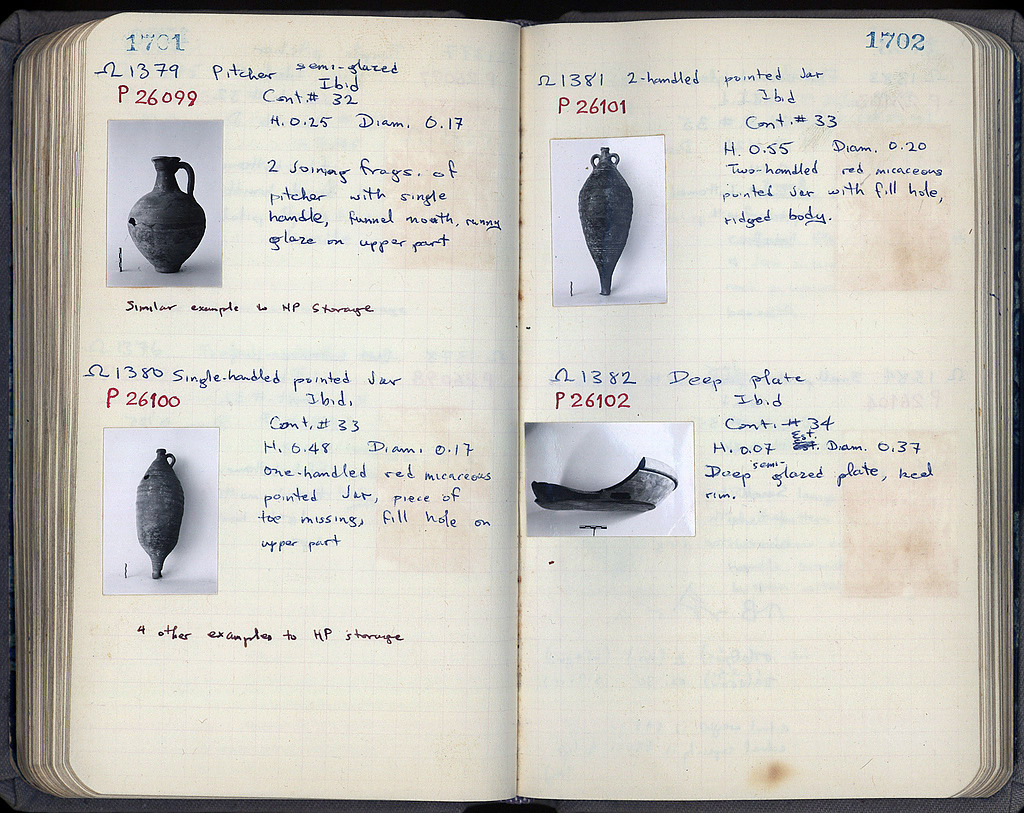 1701
Ω 1379 Pitcher semi-glazed
P 26099 Ibid
Cont. # 32
H. 0.25 Diam. 0.17
2 Joining frags. of
pitcher with single
handle, funnel mouth, runny
glaze on upper part
Similar example to HP Storage
Ω 1380 Single-handled pointed Jar
P 26100 Ibid.
Cont. # 33
H. 0.48 Diam. 0.17
One-handled red micaceous
pointed Jar, piece of
toe missing, fill hole on
upper part
4 other examples to HP storage
1702
Ω 1381 2-handled pointed Jar
P 26101 Ibid
Cont. # 33
H. 0.55 Diam. 0.20
Two-handled red micaceous
pointed Jar with fill hole,
ridged body.
Ω 1382 Deep plate
P 26102 Ibid
Cont. # 34
H. 0.07 Est. Diam. 0.37
Deep semi-glazed plate, keel
rim.